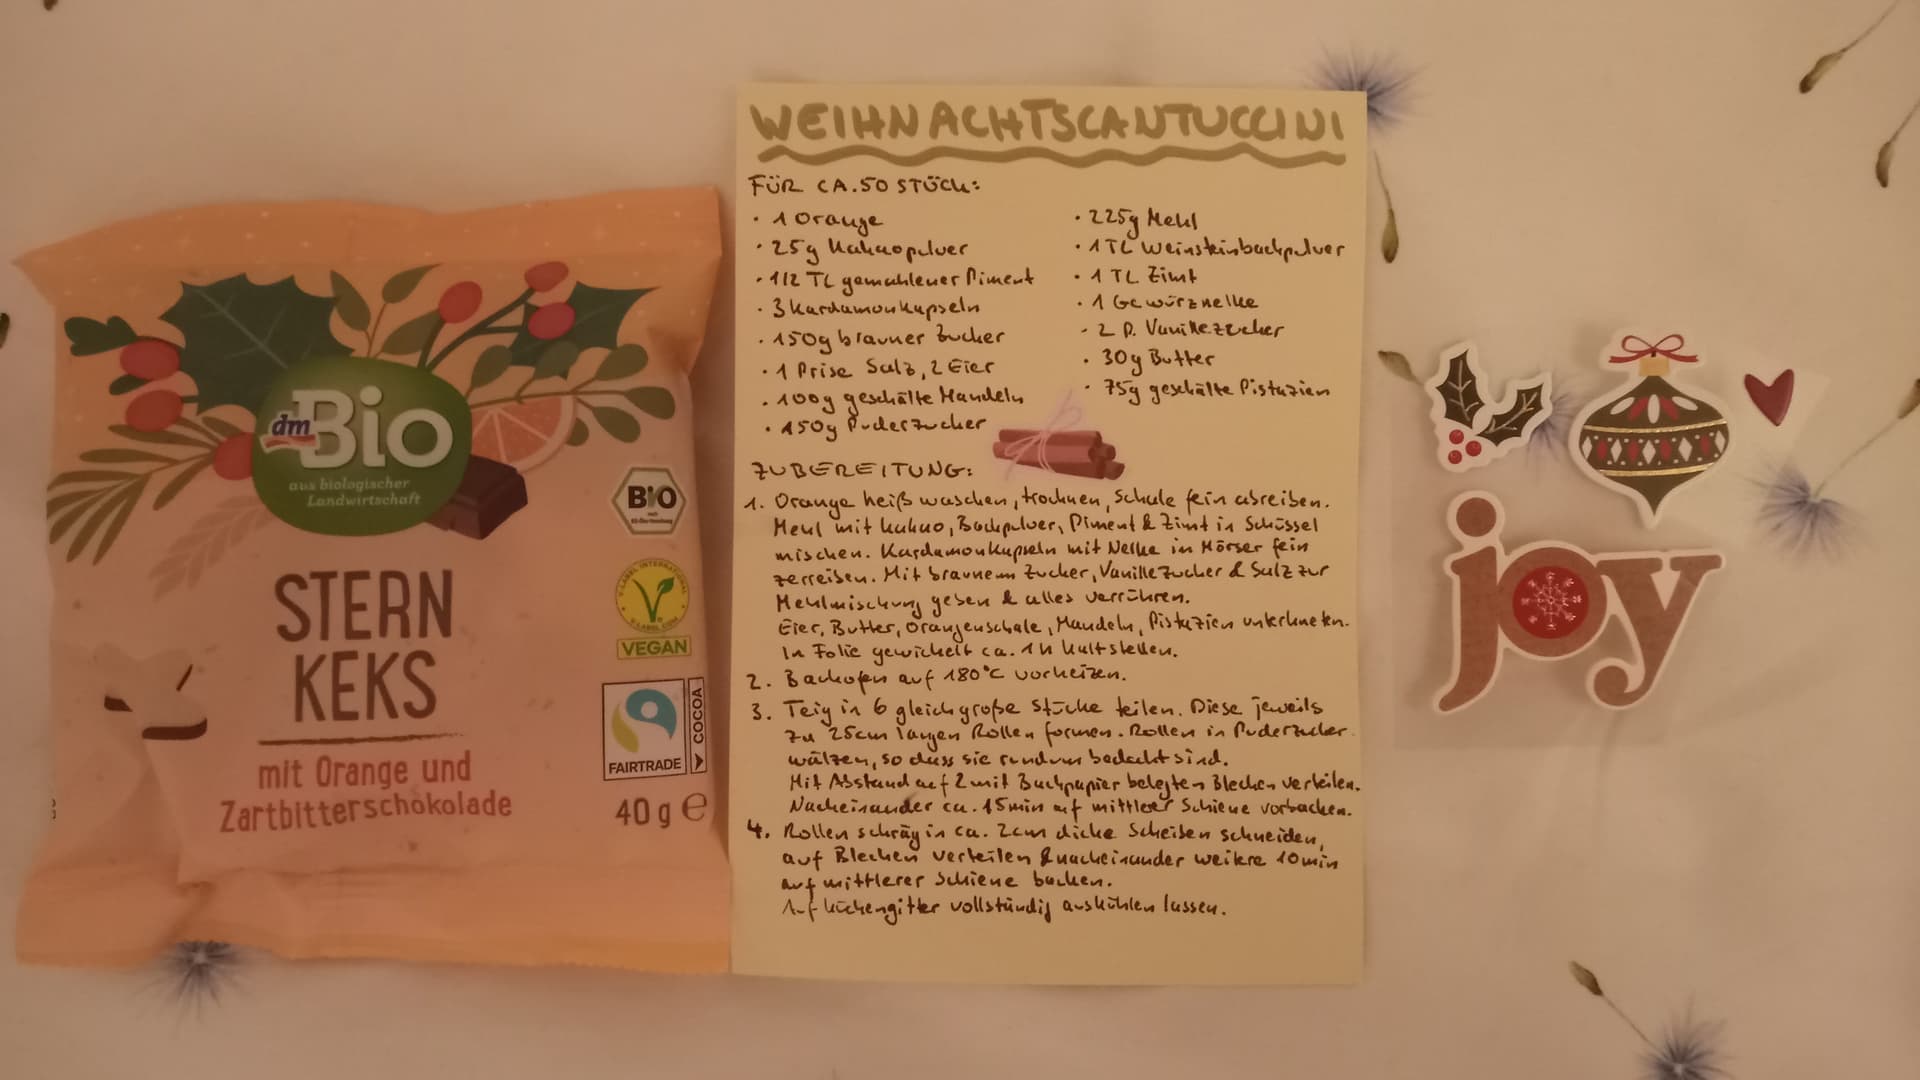 dmBio
aus biologischer
Landwirtschaft
BIO
nach
EG-Öko-Verordnung
V-LABEL INTERNATIONAL
V-LABEL.COM
VEGAN
STERN
KEKS
mit Orange und
Zartbitterschokolade
FAIRTRADE
COCOA
40 g e
WEIHNACHTSCANTUCCINI
FÜR CA. 50 STÜCK:
· 1 Orange
· 25g Kakaopulver
· 1/2 TL gemahlener Piment
· 3 Kardamonkapseln
· 150g brauner Zucker
· 1 Prise Salz, 2 Eier
· 100g geschälte Mandeln
· 150g Puderzucker
· 225g Mehl
· 1 TL Weinsteinbackpulver
· 1 TL Zimt
· 1 Gewürznelke
· 2 P. Vanillezucker
· 30g Butter
· 75g geschälte Pistazien
ZUBEREITUNG:
1. Orange heiß waschen, trocknen, Schale fein abreiben.
Mehl mit Kakao, Backpulver, Piment & Zimt in Schüssel
mischen. Kardamonkapseln mit Nelke in Mörser fein
zerreiben. Mit braunem Zucker, Vanillezucker & Salz zur
Mehlmischung geben & alles verrühren.
Eier, Butter, Orangenschale, Mandeln, Pistazien unterkneten.
In Folie gewickelt ca. 1h kaltstellen.
2. Backofen auf 180°C vorheizen.
3. Teig in 6 gleichgroße Stücke teilen. Diese jeweils
zu 25cm langen Rollen formen. Rollen in Puderzucker
wälzen, so dass sie rundum bedeckt sind.
Mit Abstand auf 2 mit Backpapier belegten Blechen verteilen.
Nacheinander ca. 15min auf mittlerer Schiene vorbacken.
4. Rollen schräg in ca. 2cm dicke Scheiben schneiden,
auf Blechen verteilen & nacheinander weitere 10min
auf mittlerer Schiene backen.
Auf Küchengitter vollständig auskühlen lassen.
joy